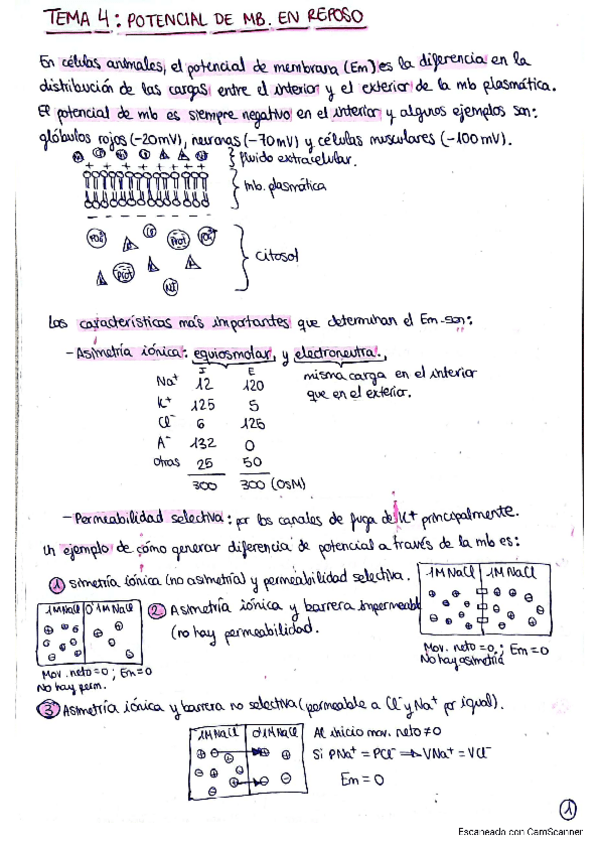 TEMA 4: POTENCIAL DE MB. EN REPOSO
En células animales, el potencial de membrana (Em) es la diferencia en la
distribución de las cargas entre el interior y el exterior de la mb plasmática.
El potencial de mb es siempre negativo en el interior y algunos ejemplos son:
glóbulos rojos (-20mV), neuronas (-70mV) y células musculares (-100mV).
fluido extracelular.
mb. plasmática
citosol
Las características más importantes que determinan el Em son:
- Asimetría iónica: equiosmolar, y electroneutra.,
I E
Na+ 12 120
K+ 125 5
Cl- 6 125
A- 132 0
otras 25 50
300 300 (OsM)
misma carga en el interior
que en el exterior.
- Permeabilidad selectiva: por los canales de fuga de K+ principalmente.
Un ejemplo de cómo generar diferencia de potencial a través de la mb es:
1 simetría iónica (no asimetría) y permeabilidad selectiva.
1M NaCl 1M NaCl
Mov. neto=0; Em=0
No hay asimetría
2 Asimetría iónica y barrera impermeabl
(no hay permeabilidad.
1M NaCl 0'1M NaCl
Mov. neto=0; Em=0
No hay perm.
3 Asimetría iónica y barrera no selectiva (permeable a Cl- y Na+ por igual).
1M NaCl 0'1M NaCl
Al inicio mov. neto ≠0
Si PNa+ = PCl- → VNa+ = VCl-
Em=0
1
Escaneado con CamScanner